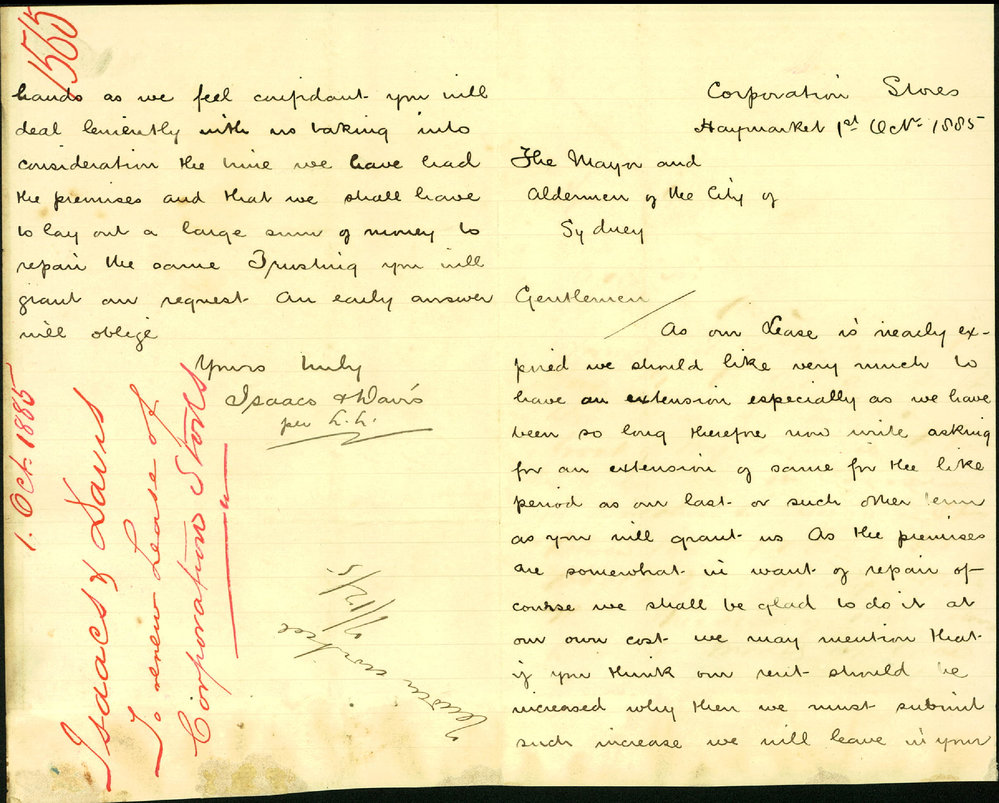 Corporation Stores
Haymarket 1st Oct. 1885
The Mayor and
Aldermen of the City of
Sydney
Gentlemen
As our Lease is nearly ex-
pired we should like very much to
have an extension especially as we have
been so long therefore now write asking
for an extension of same for the like
period as our last or such other term
as you will grant us As the premises
are somewhat in want of repair of
course we shall be glad to do it at
our own cost we may mention that
if you think our rent should be
increased why then we must submit
such increase we will leave in your
hands as we feel confidant you will
deal leniently with us taking into
consideration the time we have had
the premises and that we shall have
to lay out a large sum of money to
repair the same Trusting you will
grant our request. An early answer
will oblige
Yours truly
Isaacs & Davis
per L.L.
1565
1. Oct. 1885
Isaacs & Davis
To renew Lease of
Corporation Stores